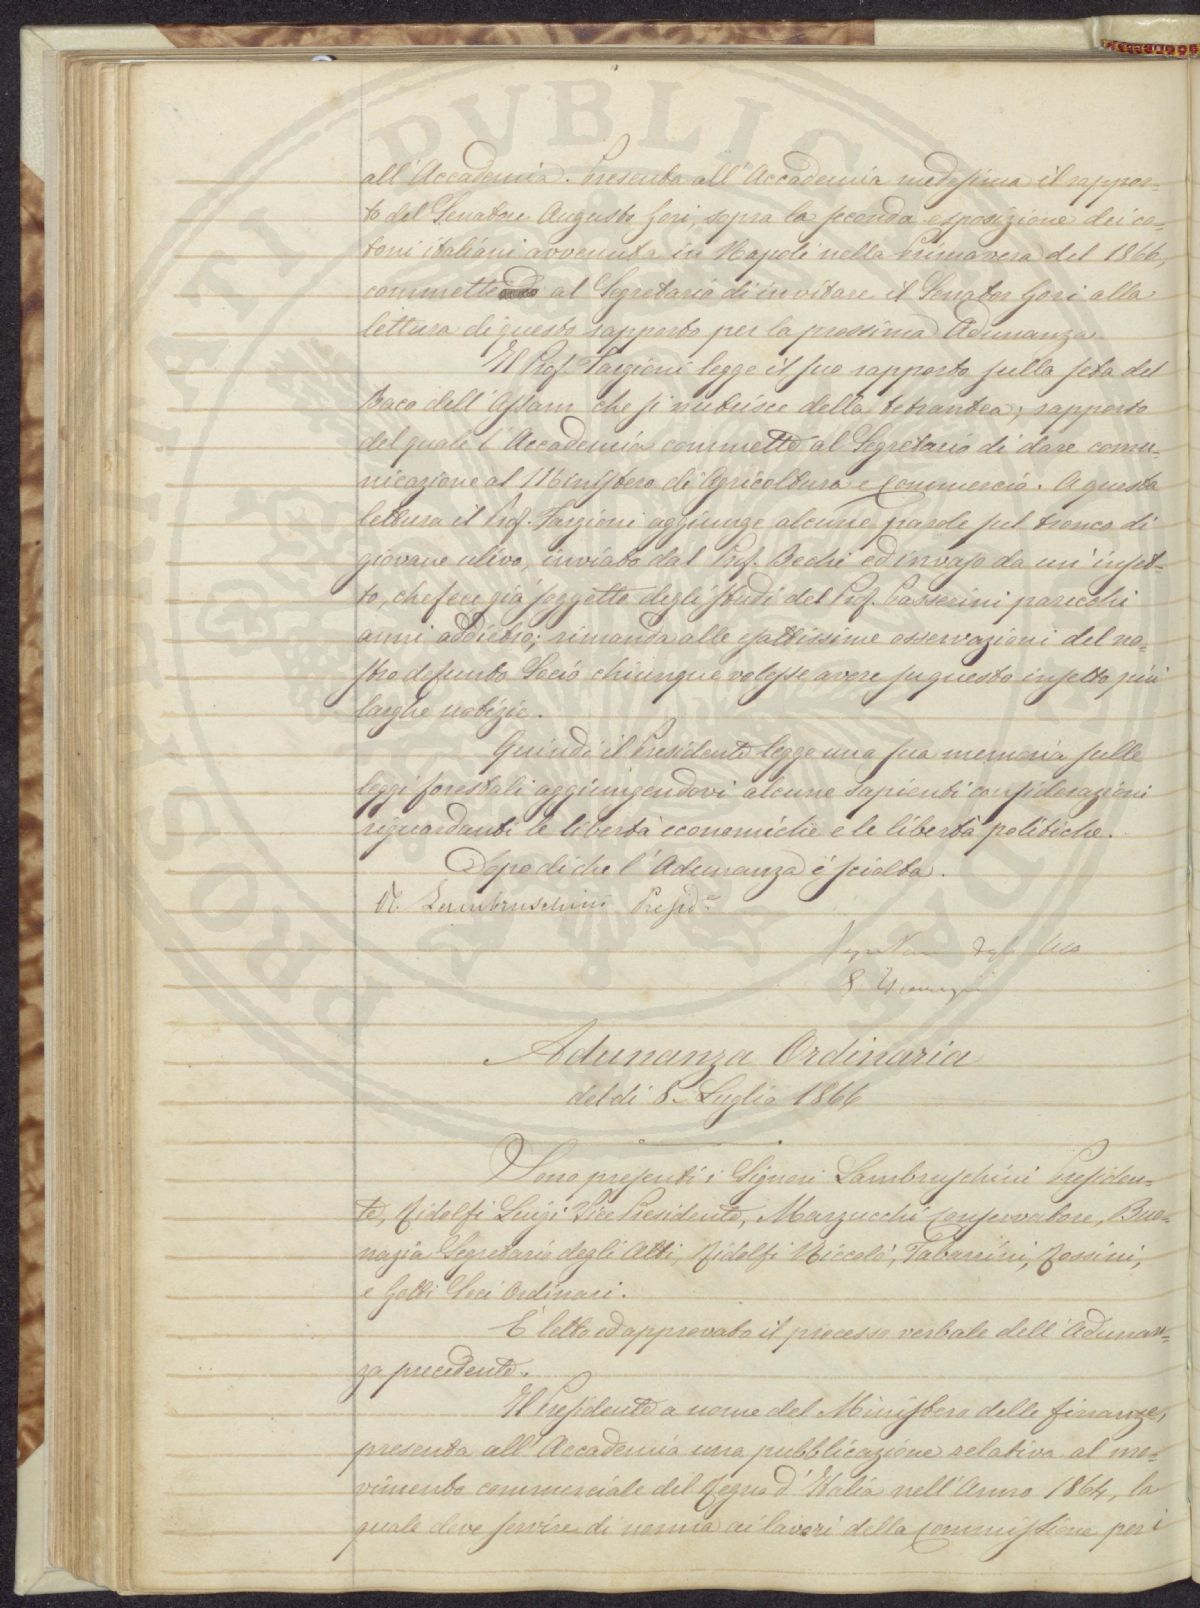 all'Accademia. Presenta all'Accademia medesima il rappor=
to del Senatore Augusto Gori, sopra la seconda esposizione dei co=
toni italiani avvenuta in Napoli nella Primavera del 1866,
commette al Segretario di invitare il Senator Gori alla
lettura di questo rapporto per la prossima Adunanza.
Il Prof. Targioni legge il suo rapporto sulla seta del
Baco dell'Assam che si nutrisce della tetrantea; rapporto
del quale l'Accademia commette al Segretario di dare comu=
nicazione al Ministero di Agricoltura e Commercio. A questa
lettura il Prof. Targioni aggiunge alcune parole sul tronco di
giovane ulivo, inviato dal Prof. Bechi ed invaso da un'inset=
to, che fece già soggetto degli studi del Prof. Passerini parecchi
anni addietro; rimanda alle esattissime osservazioni del no=
stro defunto Socio chiunque volesse avere su questo insetto più
larghe notizie.
Quindi il Presidente legge una sua memoria sulle
leggi forestali aggiungendovi alcune sapienti considerazioni
riguardanti le libertà economiche e le libertà politiche.
Dopo di che l'Adunanza è sciolta.
R. Lambruschini Presid.e
Adunanza Ordinaria
del dì 8 Luglio 1866
Sono presenti i Signori Lambruschini Presiden=
te, Ridolfi Luigi Vice Presidente, Marzucchi Conservatore, Buo=
nazia Segretario degli Atti, Ridolfi Niccolò, Tabarrini, Rossini,
e Gotti Soci Ordinari.
È letto ed approvato il processo verbale dell'Adunan=
za precedente.
Il Presidente a nome del Ministero delle finanze,
presenta all'Accademia una pubblicazione relativa al mo=
vimento commerciale del Regno d'Italia nell'Anno 1864, la
quale deve servire di norma ai lavori della Commissione per i
PVBLIC